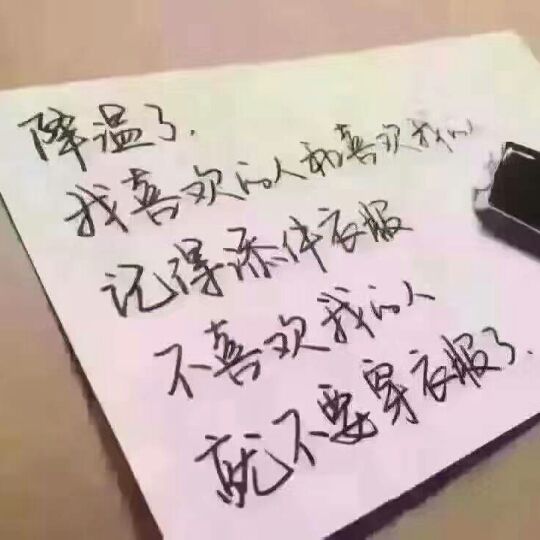 降温了.
我喜欢的人和喜欢我的
记得添件衣服
不喜欢我的人
就不要穿衣服了.